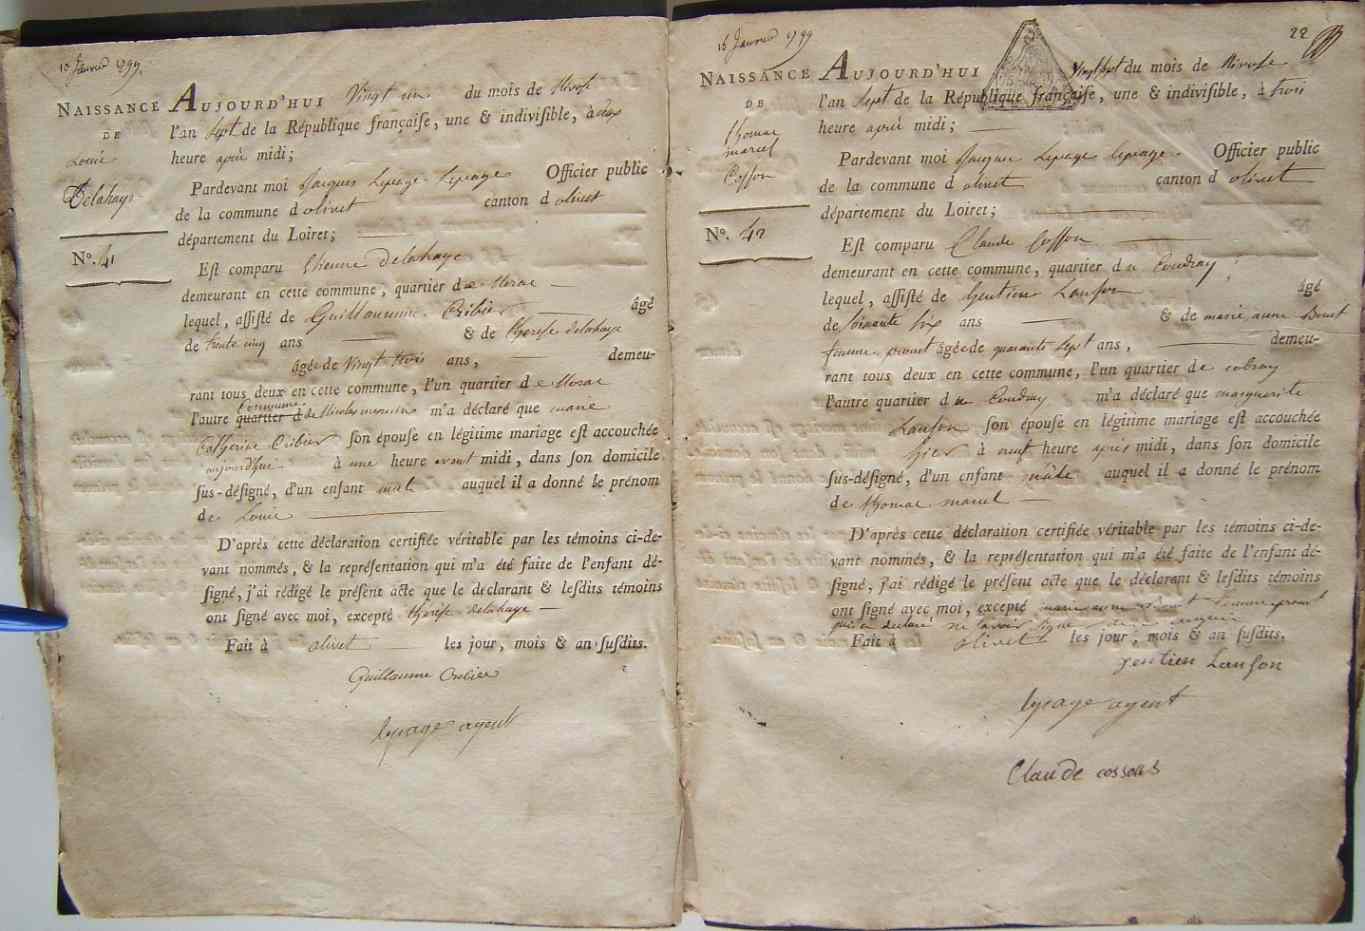 10 Janvier 1799.
NAISSANCE
DE
Louis
Delahaye
N°. 41
AUJOURD'HUI Vingt un du mois de Nivose
l'an sept de la République françaiſe, une & indiviſible, à deux
heure après midi;
Pardevant moi Jacques Lepage Lepage Officier public
de la commune d olivet canton d olivet
département du Loiret;
Eſt comparu Etienne Delahaye
demeurant en cette commune, quartier de
lequel, aſſiſté de Guillaumme Cribier âgé
de trente cinq ans & de thereſe delahaye
âgée de Vingt trois ans, demeu-
rant tous deux en cette commune, l'un quartier de
commune
l'autre quartier d de m'a déclaré que marie
Catherine Cribier ſon épouſe en légitime mariage eſt accouchée
aujourdhui à une heure avant midi, dans ſon domicile
ſus-déſigné, d'un enfant mal auquel il a donné le prénom
de Louis
D'après cette déclaration certifiée véritable par les témoins ci-de-
vant nommés, & la repréſentation qui m'a été faite de l'enfant dé-
ſigné, j'ai rédigé le préſent acte que le déclarant & leſdits témoins
ont ſigné avec moi, excepté thereſe delahaye
Fait à olivet les jour, mois & an ſuſdits.
Guillaume Cribier
lepage agent
16 Janvier 1799
22
NAISSANCE
DE
thomas
marcel
Cosson
N°. 42
AUJOURD'HUI Vingt sept du mois de Nivose
l'an sept de la République françaiſe, une & indiviſible, à trois
heure après midi;
Pardevant moi Jacques Lepage lepage Officier public
de la commune d olivet canton d olivet
département du Loiret;
Eſt comparu Claude Cosson
demeurant en cette commune, quartier du Coudray
lequel, aſſiſté de Gentien Lanson âgé
de soixante six ans & de marie anne
femme prout âgée de quarante sept ans, demeu-
rant tous deux en cette commune, l'un quartier de
l'autre quartier du Coudray m'a déclaré que marguerite
Lanson ſon épouſe en légitime mariage eſt accouchée
hier à neuf heure après midi, dans ſon domicile
ſus-déſigné, d'un enfant mâle auquel il a donné le prénom
de thomas marcel
D'après cette déclaration certifiée véritable par les témoins ci-de-
vant nommés, & la repréſentation qui m'a été faite de l'enfant dé-
ſigné, j'ai rédigé le préſent acte que le déclarant & leſdits témoins
ont ſigné avec moi, excepté marie anne femme prout
qui a declaré ne savoir signer
Fait à olivet les jour, mois & an ſuſdits.
gentien Lanson
lepage agent
Claude cosson